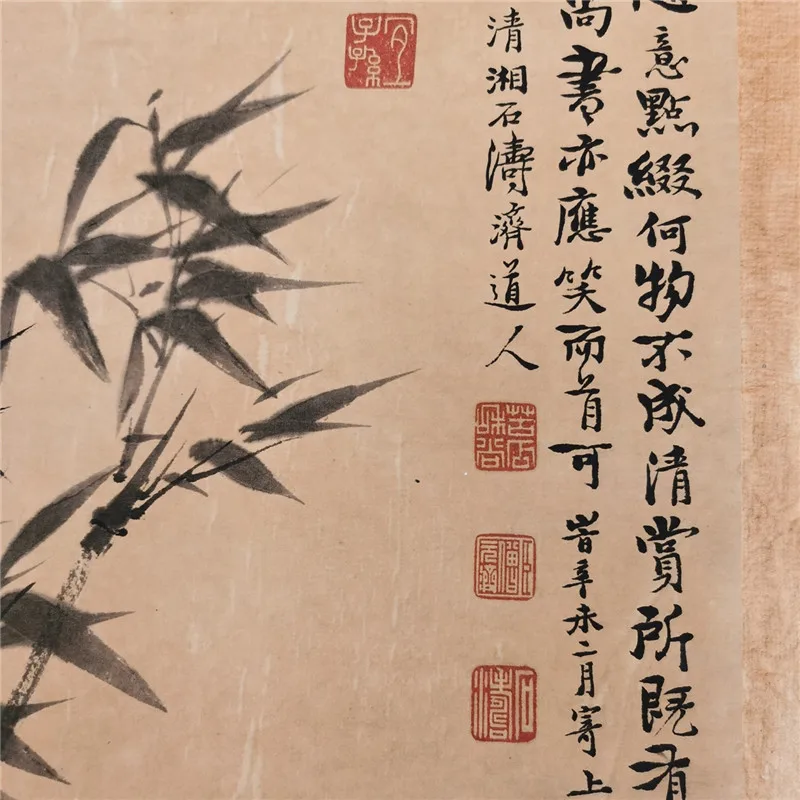 意點綴何物不成清賞所既有
尚書亦應笑而首可 旹辛未二月寄上
清湘石濤濟道人
石濤